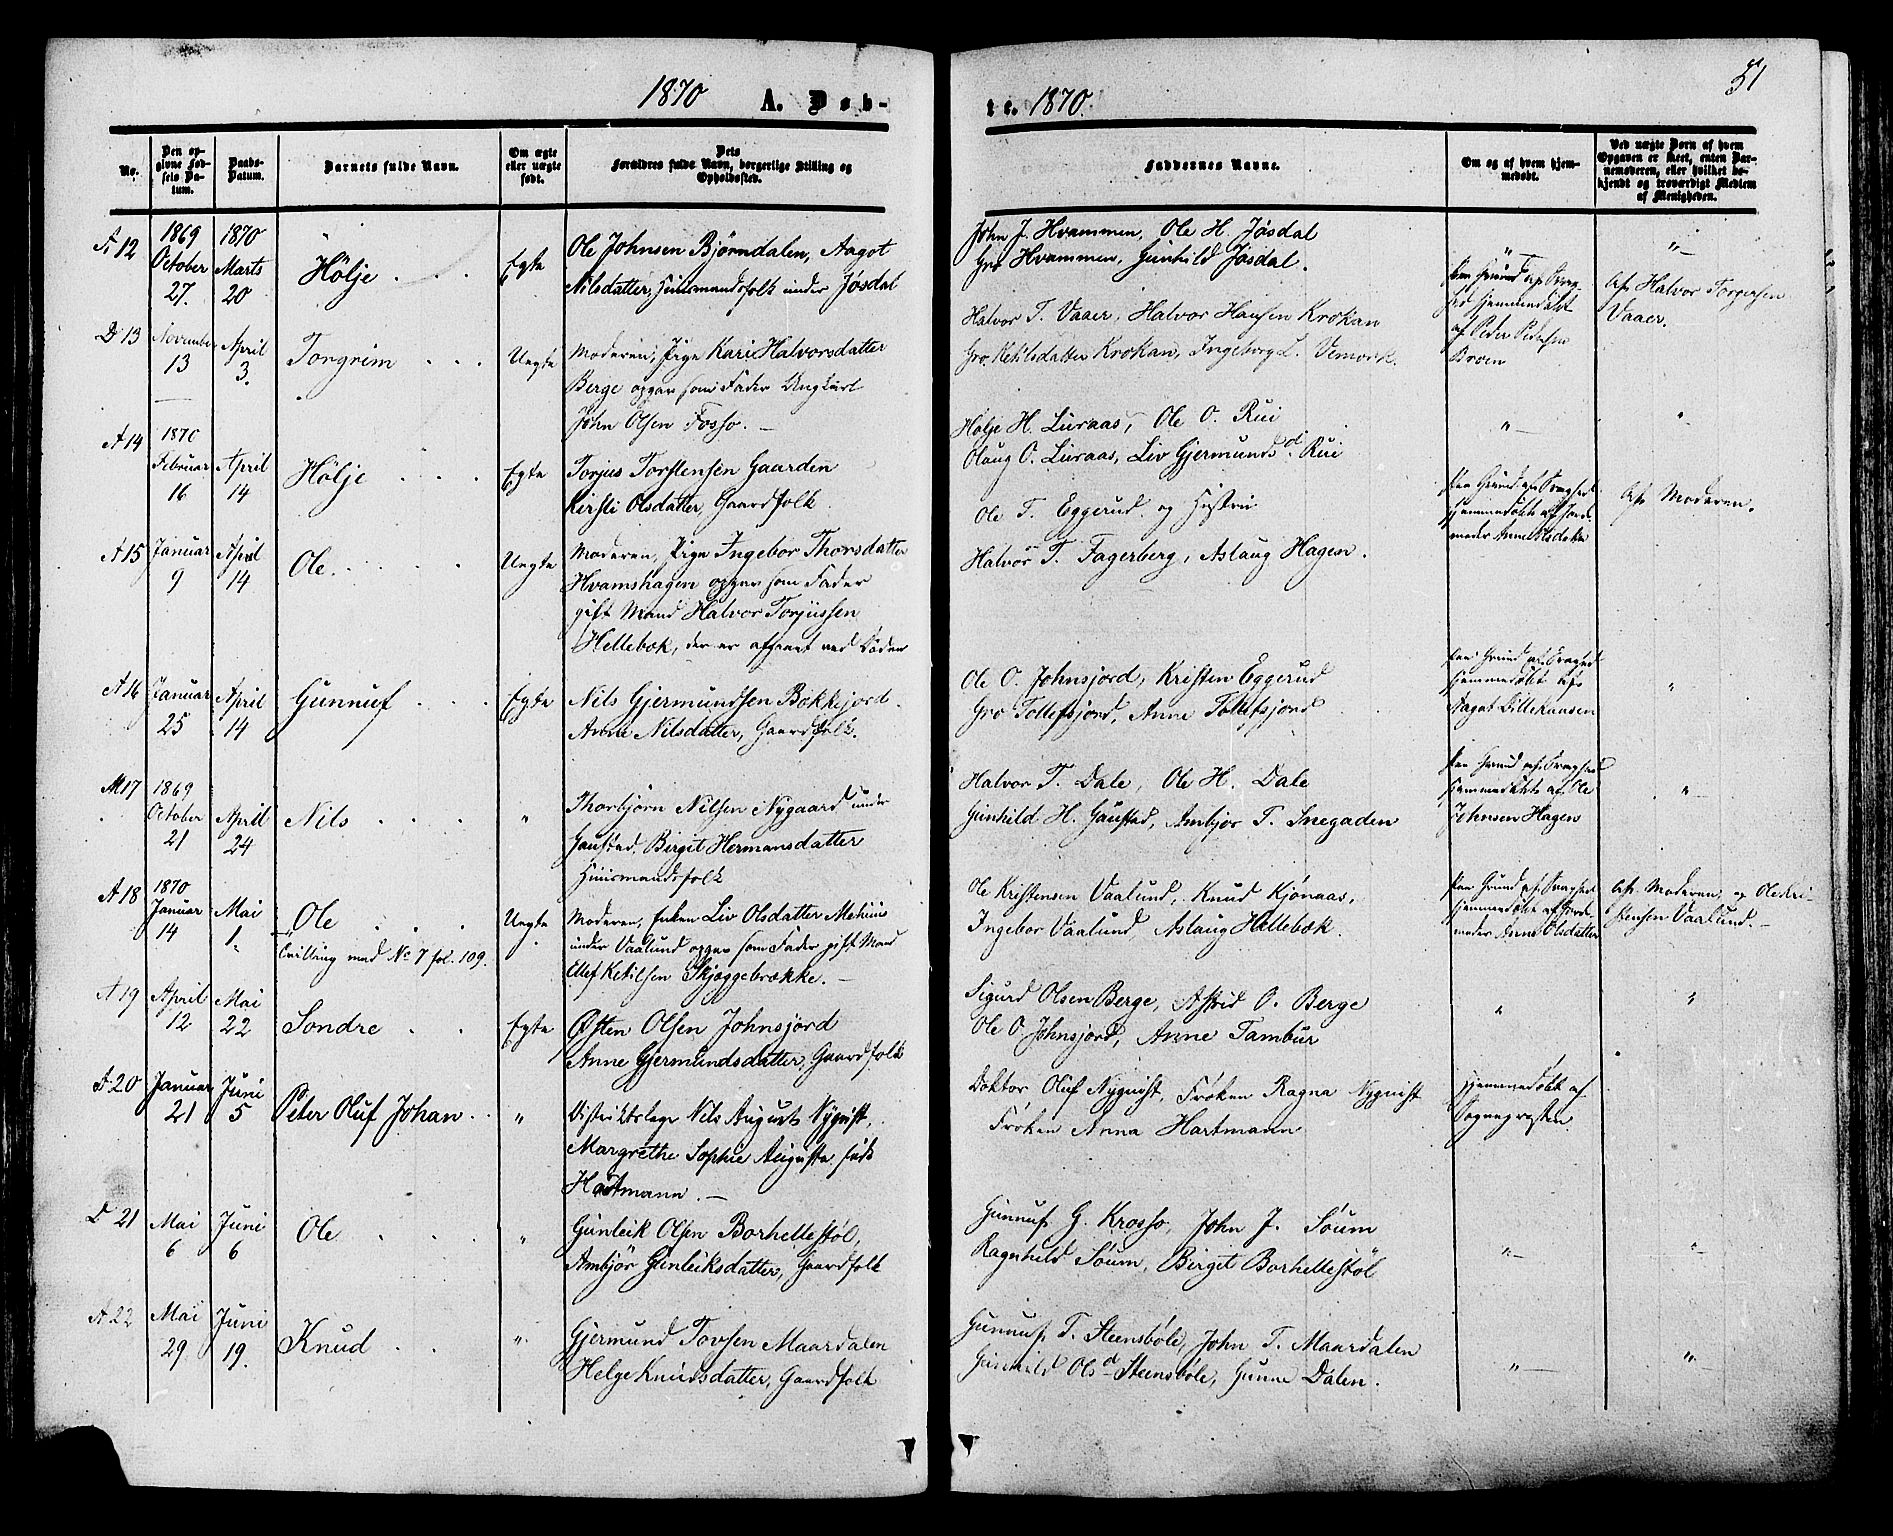 1870 A. Døb-
te. 1870.
51
No.
Den op-
givne Fød-
sels Da-
tum.
Daabs-
Datum.
Barnets fulde Navn.
Om ægte
eller uægte
født.
Dets
Forældres fulde Navn, borgerlige Stilling og
Opholdssted.
Faddernes Navne.
Om og af hvem hjem-
medøbt.
Ved uægte Børn af hvem
Opgaven er skeet, enten Bar-
nemoderen, eller hvilket be-
kjendt og troværdigt Medlem
af Menigheden.
12 1869 October 27. 1870 Marts 20 Hølje Egte
Ole Johnsen Bjørndalen, Aagot
Nilsdatter, Huusmandsfolk under Jøsdal
John J. Hvammen, Ole H. Jøsdal
Gro Hvammen, Gunhild Jøsdal.
" "
D 13 November 13 April 3. Torgrim Uegte
Moderen, Pige Kari Halvorsdatter
Berge opgav som Fader Ungkarl
John Olsen Fosso. –
Halvor T. Vaaer, Halvor Hansen Krokan
Gro Ketilsdatter Krokan, Ingeborg L. Vemork.
Paa Grund af Svag-
hed hjemmedøbt
af Peder Pedersen
Broen
Af Halvor Torgersen
Vaaer.
A 14 1870 Februar 16 April 14 Hølje Egte
Torjus Torstensen Gaarden
Kirsti Olsdatter, Gaardfolk.
Hølje H. Luraas, Ole O. Rui
Olaug O. Luraas, Liv Gjermundsd. Rui
" "
A 15 Januar 9 April 14 Ole Uegte
Moderen, Pige Ingebor Thorsdatter
Hvamshagen opgav som Fader
gift Mand Halvor Torjussen
Hellebæk, der er afgaaet ved Døden
Ole T. Eggerud og Hustru
Halvor T. Fagerberg, Aslaug Hagen.
Paa Grund af Svaghed
hjemmedøbt af Jorde-
moder Anne Olsdatter
Af Moderen.
A 16 Januar 25 April 14 Gunnuf Egte
Nils Gjermundsen Bøkkejord.
Anne Nilsdatter, Gaardfolk.
Ole O. Johnsjord, Kristen Eggerud
Gro Tollefsjord, Anne Tollefsjord
Paa Grund af Svaghed
hjemmedøbt af
Aagot Lillehansen
"
M 17 1869 October 21 April 24 Nils "
Thorbjørn Nilsen Nygaard under
Gausted, Birgit Hermansdatter
Huusmandsfolk
Halvor T. Dale, Ole H. Dale
Gunhild H. Gausted, Ambjør T. Snegaden
Paa Grund af Svaghed
hjemmedøbt af Ole
Johnsen Hagen
"
A 18 1870 Januar 14 Mai 1. Ole Uegte
Tvilling med No 7 fol. 109.
Moderen, Enken Liv Olsdatter
under Vaalund opgav som Fader gift Mand
Ellef Ketilsen Skjæggebrække. –
Ole Kristensen Vaalund, Knud Kjønaas,
Ingebor Vaalund, Aslaug Hellebæk.
Paa Grund af Svaghed
hjemmedøbt af Jorde-
moder Anne Olsdatter
Af Moderen, og Ole Kri-
stensen Vaalund. –
A 19 April 12 Mai 22 Sondre Egte
Østen Olsen Johnsjord
Anne Gjermundsdatter, Gaardfolk
Sigurd Olsen Berge, Astrid O. Berge
Ole O. Johnsjord, Anne Tambur
" "
20 Januar 21 Juni 5 Peter Oluf Johan "
Distriktslæge Nils August Nyquist,
Margrethe Sophie Augusta, født
Hartmann. –
Doktor Oluf Nyquist, Frøken Ragna Nyquist
Frøken Anna Hartmann
Hjemmedøbt af
Sognepresten
D 21 Mai 6 Juni 6 Ole "
Gunleik Olsen Borhellestøl,
Ambjør Gunleiksdatter, Gaardfolk
Gunnuf G. Krosso, John J. Søum
Ragnhild Søum, Birgit Borhellestøl
" "
A 22 Mai 29 Juni 19. Knud "
Gjermund Tovsen Maardalen
Helge Knudsdatter, Gaardfolk
Gunnuf T. Steensbøle, John T. Maardalen
Gunhild Olsd Steensbøle, Gunne Dalen.
" "